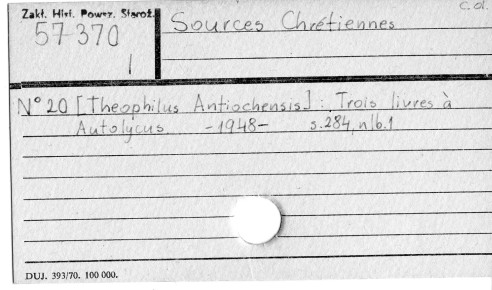 Zakł. Hist. Powsz. Staroż.
57-370
1
Sources Chrétiennes
c. d.
N° 20 [Theophilus Antiochensis]: Trois livres à
Autolycus -1948- s. 284, nlb. 1
DUJ. 393/70. 100 000.